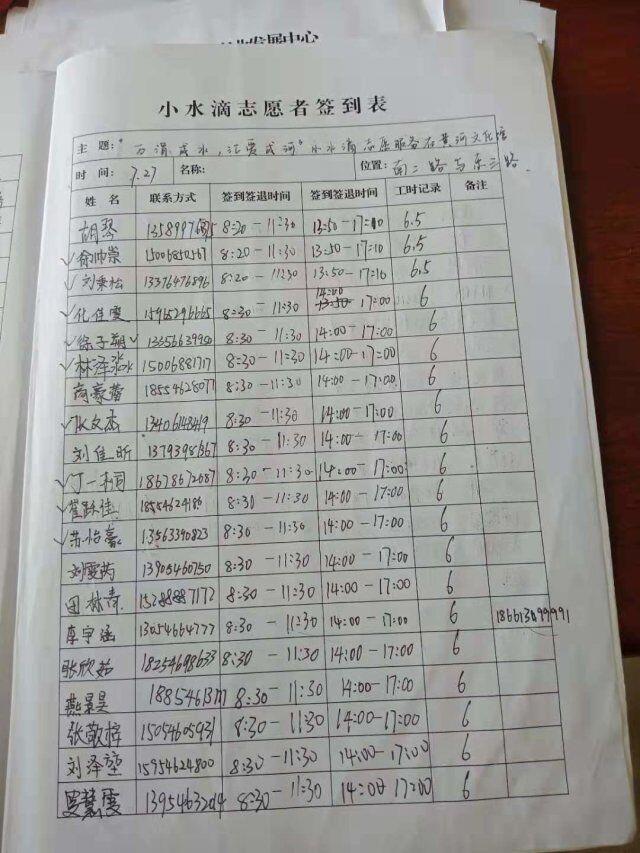 业发展中心
小水滴志愿者签到表
主 题: "万涓成水,汇爱成河"小水滴志愿服务在黄河文化馆
时 间: 7.27 名称: 位置: 南二路与东三路
姓 名 联系方式 签到签退时间 签到签退时间 工时记录 备注
胡琴 8:20-11:30 13:50-17:10 6.5
√俞帅崇 15006850567 8:20-11:30 13:50-17:10 6.5
√刘秉松 13376476896 8:20-11:30 13:50-17:10 6.5
√化佳雯 15965296665 8:30-11:30 14:00 17:00 6
√徐子朔√ 13356639950 8:30-11:30 14:00-17:00 6
√林泽淼 15006881717 8:30-11:30 14:00-17:00 6
商豪蕾 18554628077 8:30-11:30 14:00-17:00 6
√张文杰 13406148419 8:30-11:30 14:00-17:00 6
刘佳昕 13793981367 8:30-11:30 14:00-17:00 6
√丁一桐 18678672687 8:30-11:30 14:00-17:00 6
√崔跃佳 18554624186 8:30-11:30 14:00-17:00 6
√苏怡嘉 13563390823 8:30-11:30 14:00-17:00 6
刘雯芮 13905460750 8:30-11:30 14:00-17:00 6
田林青 15288887172 8:30-11:30 14:00-17:00 6
李宇涵 13054664777 8:30-11:30 14:00-17:00 6 18661309991
张欣茹 18254698633 8:30-11:30 14:00-17:00 6
燕景昊 8:30-11:30 14:00-17:00 6
张敬梓 15054605931 8:30-11:30 14:00-17:00 6
刘泽堃 15954624800 8:30-11:30 14:00-17:00 6
罗慧雯 8:30-11:30 14:00 17:00 6